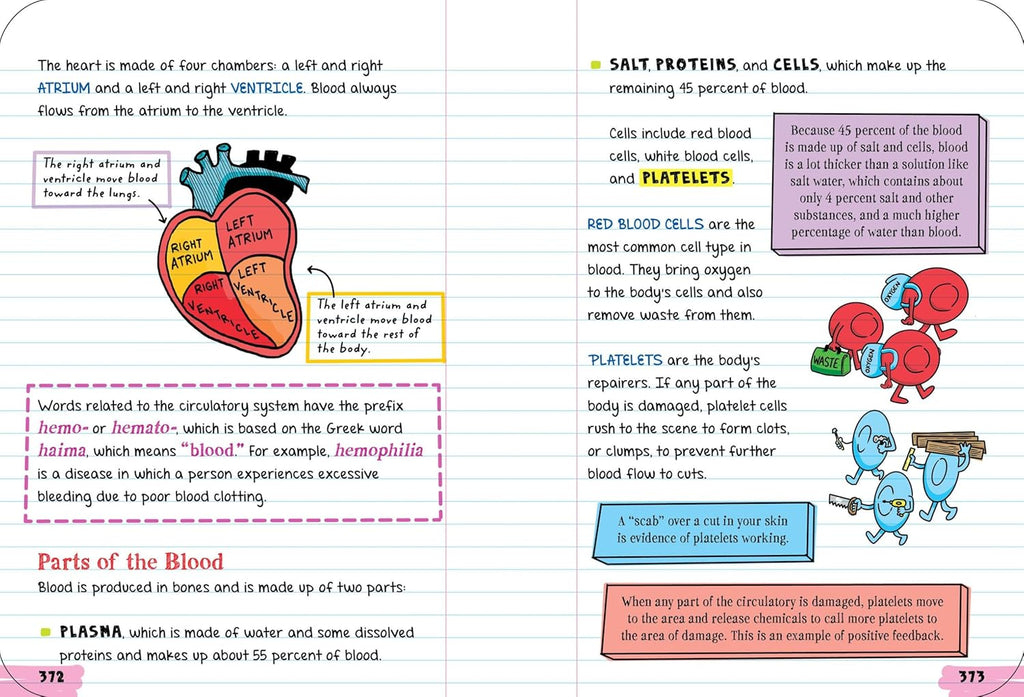 The heart is made of four chambers: a left and right
ATRIUM and a left and right VENTRICLE. Blood always
flows from the atrium to the ventricle.
The right atrium and
ventricle move blood
toward the lungs.
RIGHT
ATRIUM
LEFT
ATRIUM
RIGHT
VENTRICLE
LEFT
VENTRICLE
The left atrium and
ventricle move blood
toward the rest of
the body.
Words related to the circulatory system have the prefix
hemo- or hemato-, which is based on the Greek word
haima, which means “blood.” For example, hemophilia
is a disease in which a person experiences excessive
bleeding due to poor blood clotting.
Parts of the Blood
Blood is produced in bones and is made up of two parts:
PLASMA, which is made of water and some dissolved
proteins and makes up about 55 percent of blood.
372
SALT, PROTEINS, and CELLS, which make up the
remaining 45 percent of blood.
Cells include red blood
cells, white blood cells,
and PLATELETS.
Because 45 percent of the blood
is made up of salt and cells, blood
is a lot thicker than a solution like
salt water, which contains about
only 4 percent salt and other
substances, and a much higher
percentage of water than blood.
RED BLOOD CELLS are the
most common cell type in
blood. They bring oxygen
to the body's cells and also
remove waste from them.
OXYGEN
WASTE
OXYGEN
PLATELETS are the body's
repairers. If any part of the
body is damaged, platelet cells
rush to the scene to form clots,
or clumps, to prevent further
blood flow to cuts.
A “scab” over a cut in your skin
is evidence of platelets working.
When any part of the circulatory is damaged, platelets move
to the area and release chemicals to call more platelets to
the area of damage. This is an example of positive feedback.
373